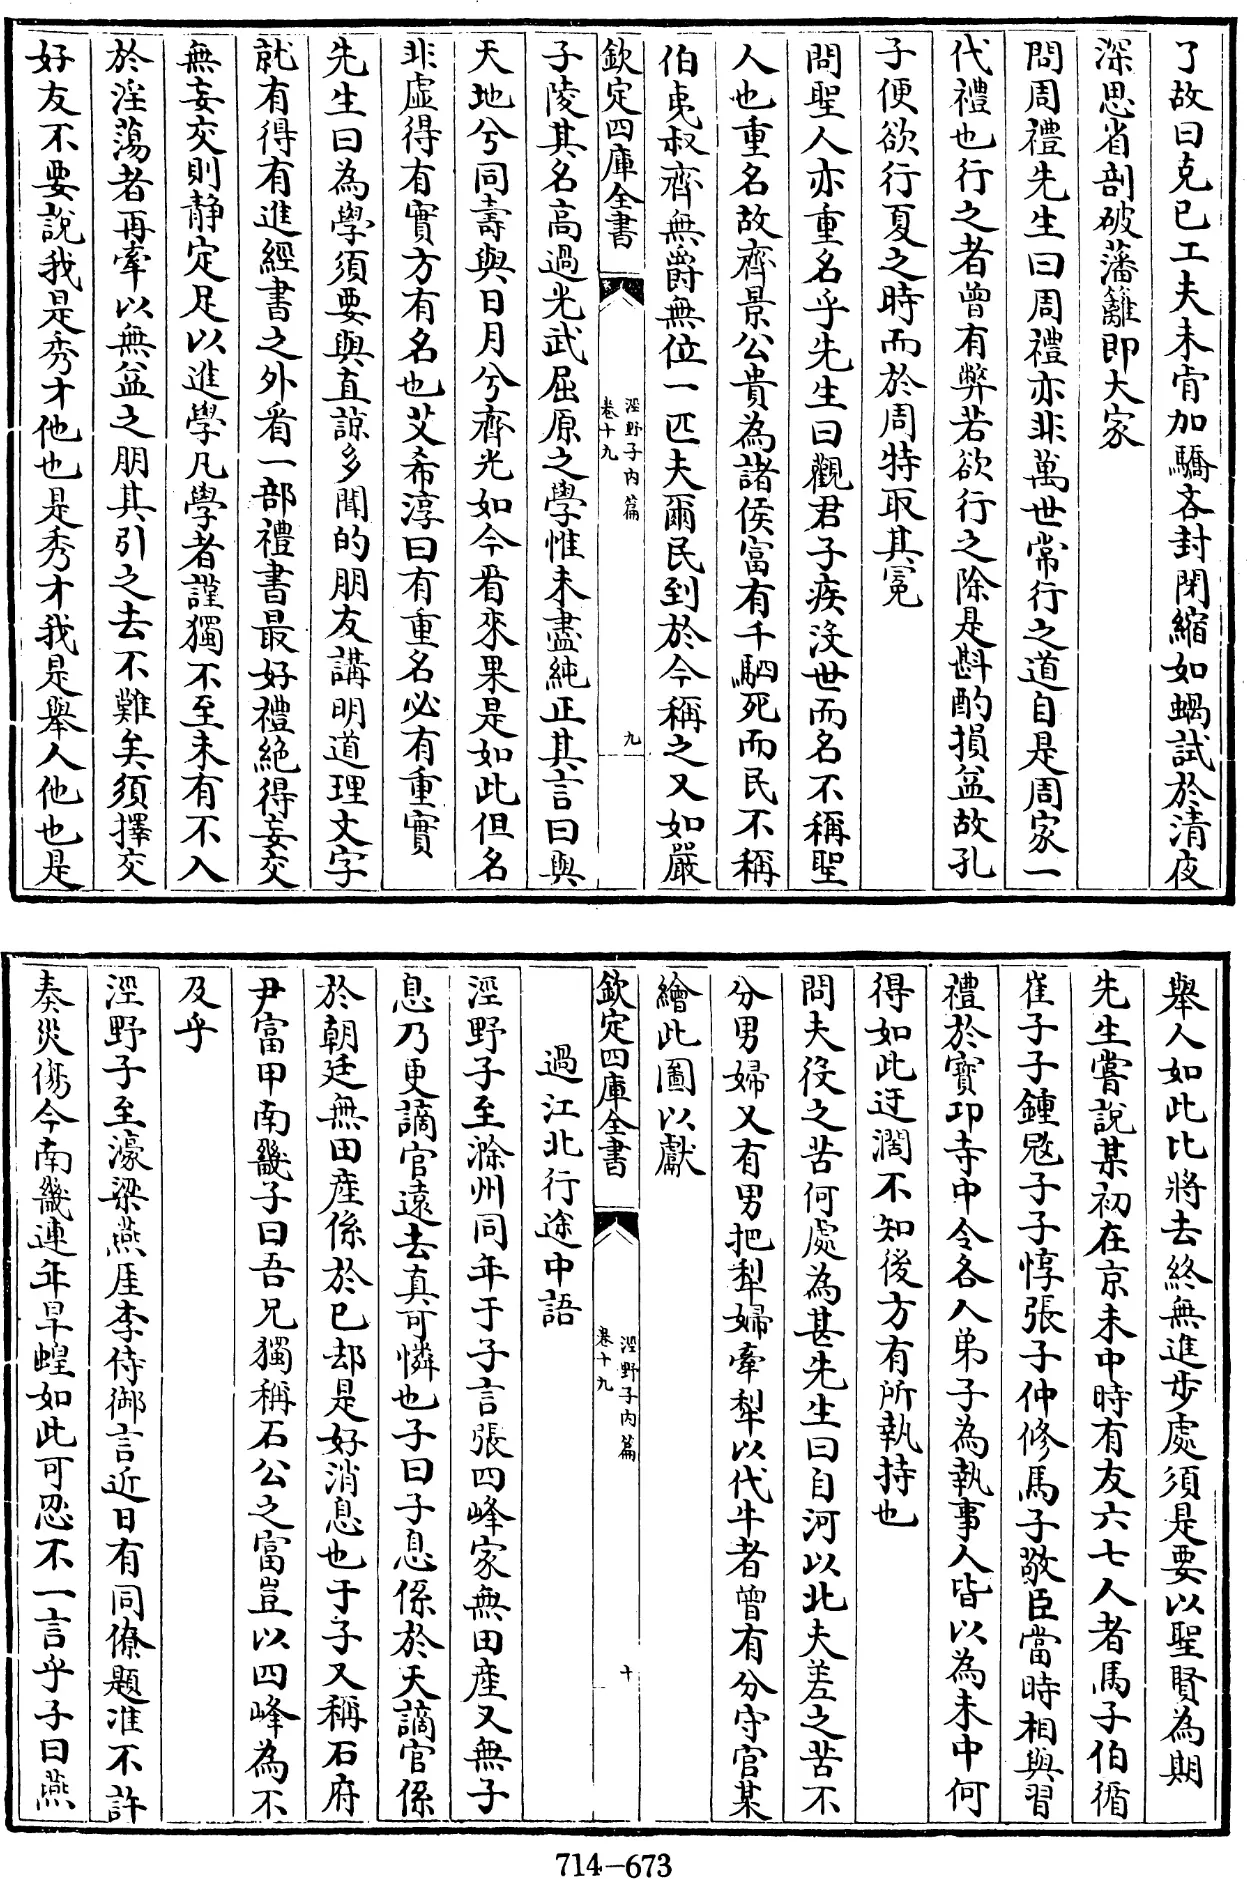 了故曰克己工夫未肯加驕吝封閉縮如蝸試於清夜
深思省剖破藩籬即大家
問周禮先生曰周禮亦非萬世常行之道自是周家一
代禮也行之者曾有弊若欲行之除是斟酌損益故孔
子便欲行夏之時而於周特取其冕
問聖人亦重名乎先生曰觀君子疾没世而名不稱聖
人也重名故齊景公貴為諸侯富有千駟死而民不稱
伯夷叔齊無爵無位一匹夫爾民到於今稱之又如嚴
欽定四庫全書
涇野子内篇
卷十九
九
子陵其名高過光武屈原之學惟未盡純正其言曰與
天地兮同壽與日月兮齊光如今看來果是如此但名
非虛得有實方有名也艾希淳曰有重名必有重實
先生曰為學須要與直諒多聞的朋友講明道理文字
就有得有進經書之外看一部禮書最好禮絶得妄交
無妄交則静定足以進學凡學者謹獨不至未有不入
於淫蕩者再牽以無益之朋其引之去不難矣須擇交
好友不要說我是秀才他也是秀才我是舉人他也是
舉人如此比將去終無進步處須是要以聖賢為期
先生嘗說某初在京未中時有友六七人者馬子伯循
崔子子鍾㓂子子惇張子仲修馬子敬臣當時相與習
禮於寶卭寺中令各人弟子為執事人皆以為未中何
得如此迂濶不知後方有所執持也
問夫役之苦何處為甚先生曰自河以北夫差之苦不
分男婦又有男把犁婦牽犁以代牛者曾有分守官某
繪此圖以獻
欽定四庫全書
涇野子内篇
卷十九
十
過江北行途中語
涇野子至滁州同年于子言張四峰家無田産又無子
息乃更謫官遠去真可憐也子曰子息係於天謫官係
於朝廷無田産係於己却是好消息也于子又稱石府
尹富甲南畿子曰吾兄獨稱石公之富豈以四峰為不
及乎
涇野子至濠梁燕厓李侍御言近日有同僚題准不許
奏災傷今南畿連年旱蝗如此可忍不一言乎子曰燕
714-673